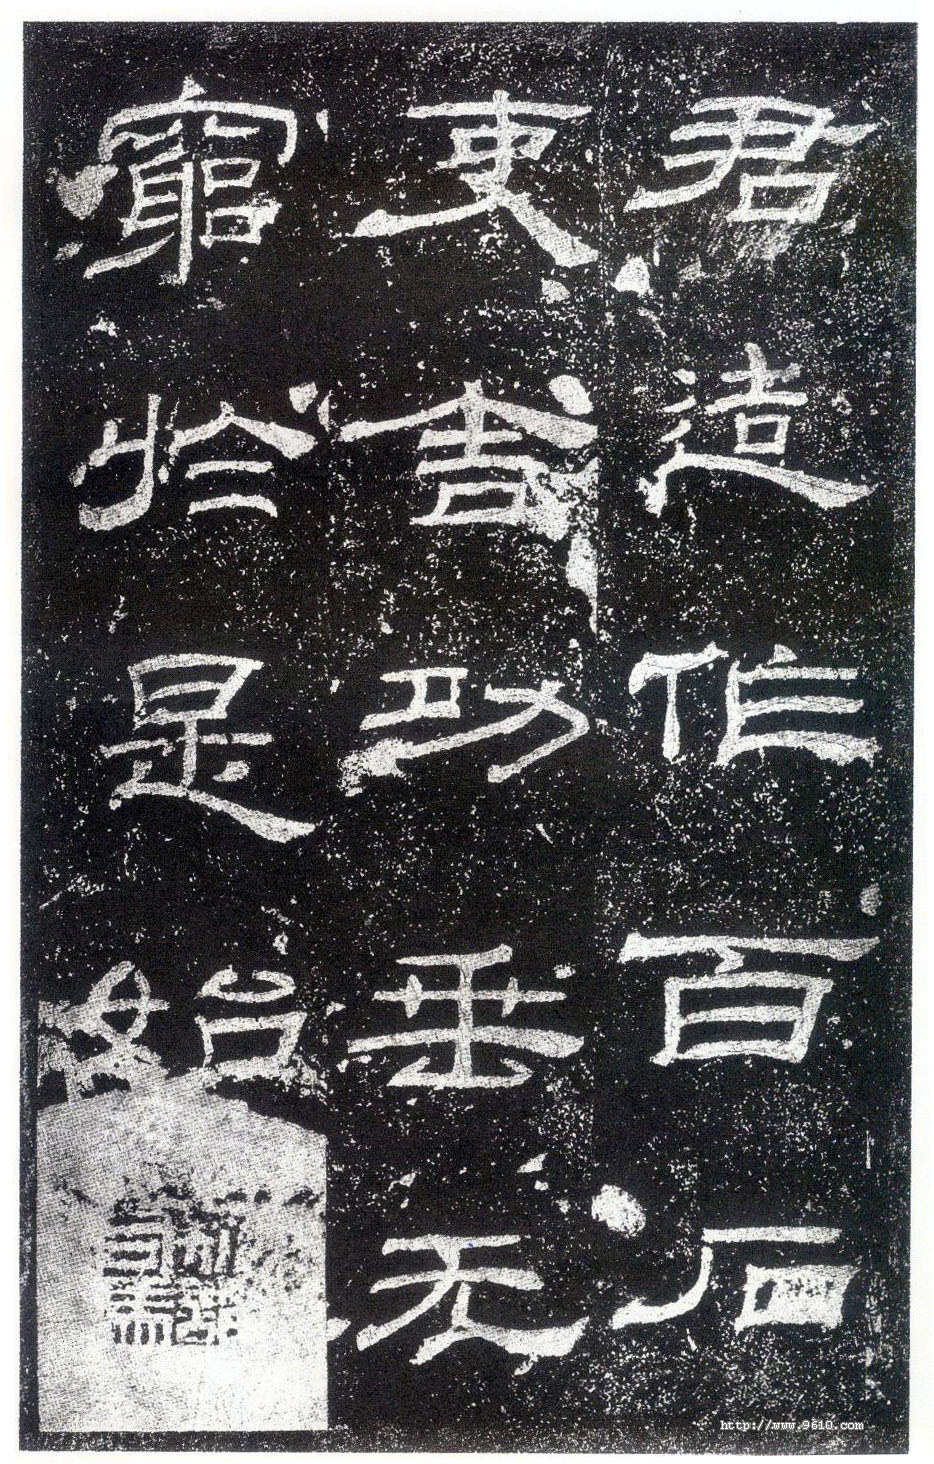 君造作百石
吏舍功垂无
窮於是始
http://www.9610.com